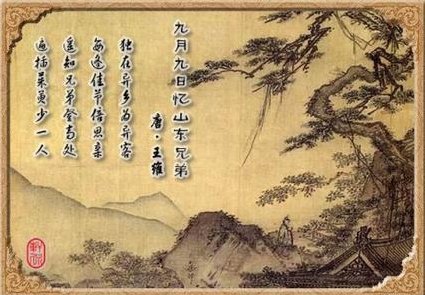 九月九日忆山东兄弟
唐·王维
独在异乡为异客
每逢佳节倍思亲
遥知兄弟登高处
遍插茱萸少一人